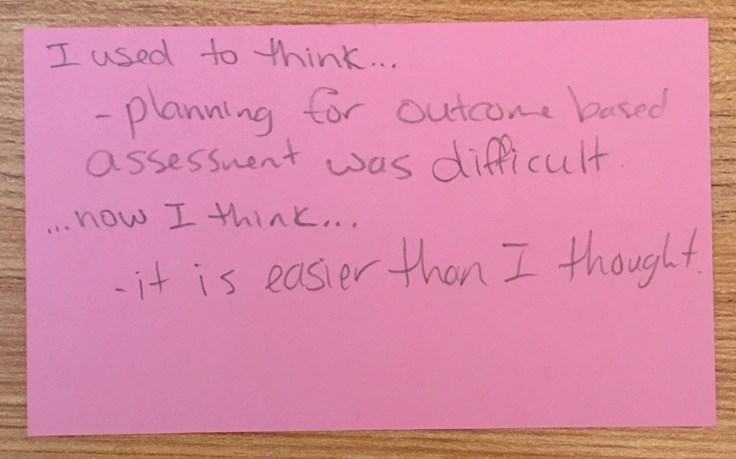 I used to think...
- planning for outcome based
assessment was difficult.
...now I think...
- it is easier than I thought.